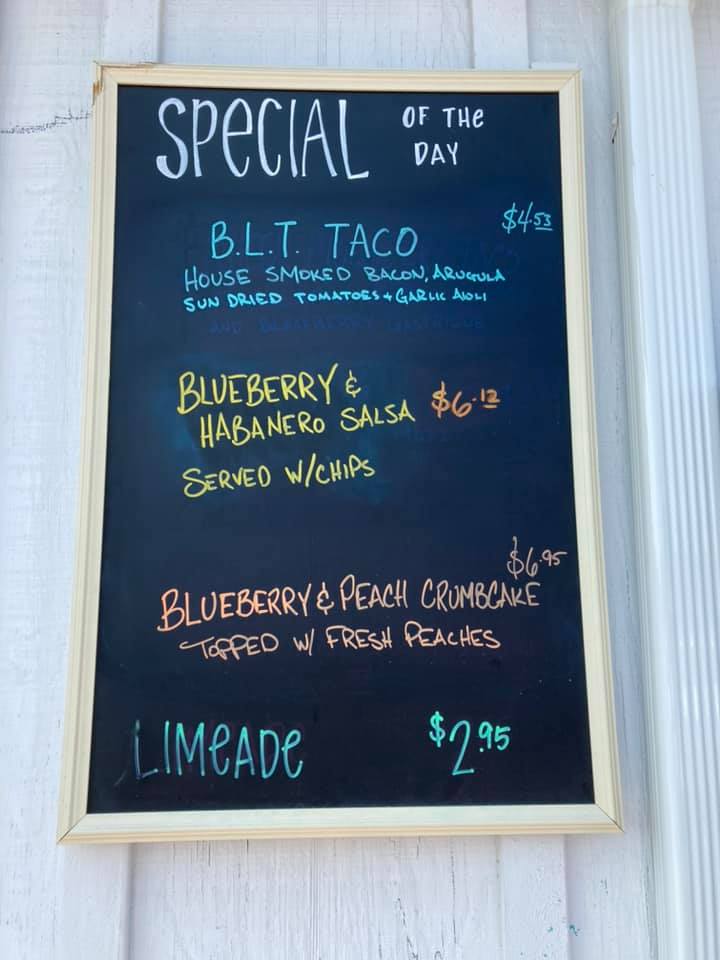 SPECIAL OF THE DAY
B.L.T. TACO $4.53
HOUSE SMOKED BACON, ARUGULA
SUN DRIED TOMATOES + GARLIC AIOLI
BLUEBERRY &
HABANERO SALSA $6.12
SERVED W/CHIPS
$6.95
BLUEBERRY & PEACH CRUMBCAKE
TOPPED W/ FRESH PEACHES
LIMEADE $2.95